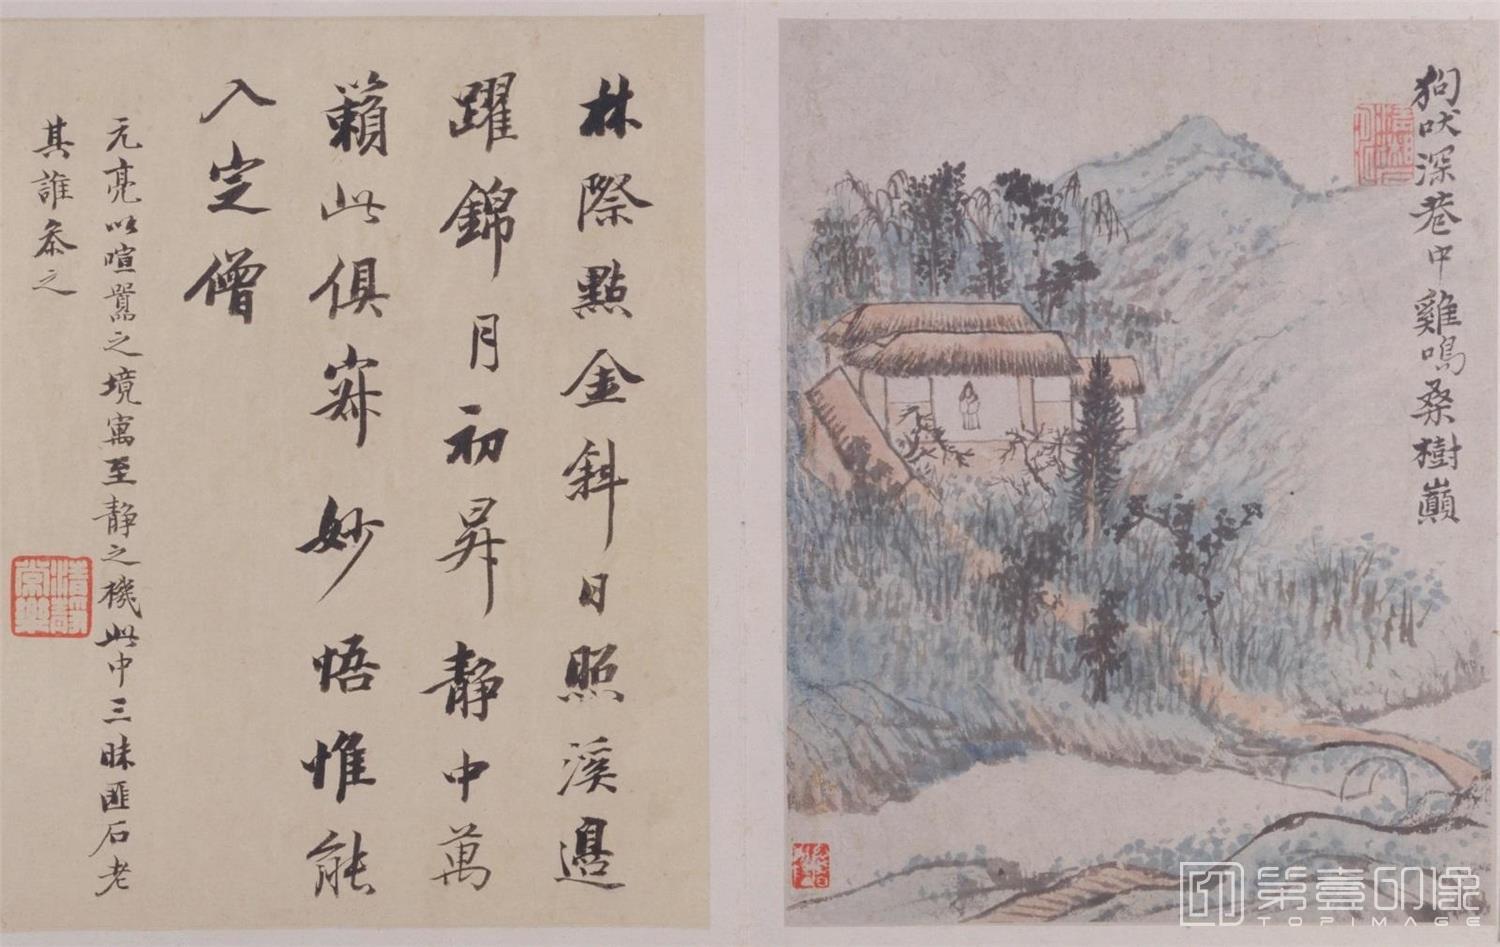 狗吠深巷中雞鳴桑樹巔
林際點金斜日照溪邊
躍錦月初昇靜中萬
籟此俱寂妙悟惟能
入定僧
元亮以喧囂之境寓至靜之機此中三昧匪石老
其誰參之
清湘石
清淨常樂
第壹印象
TOPIMAGE